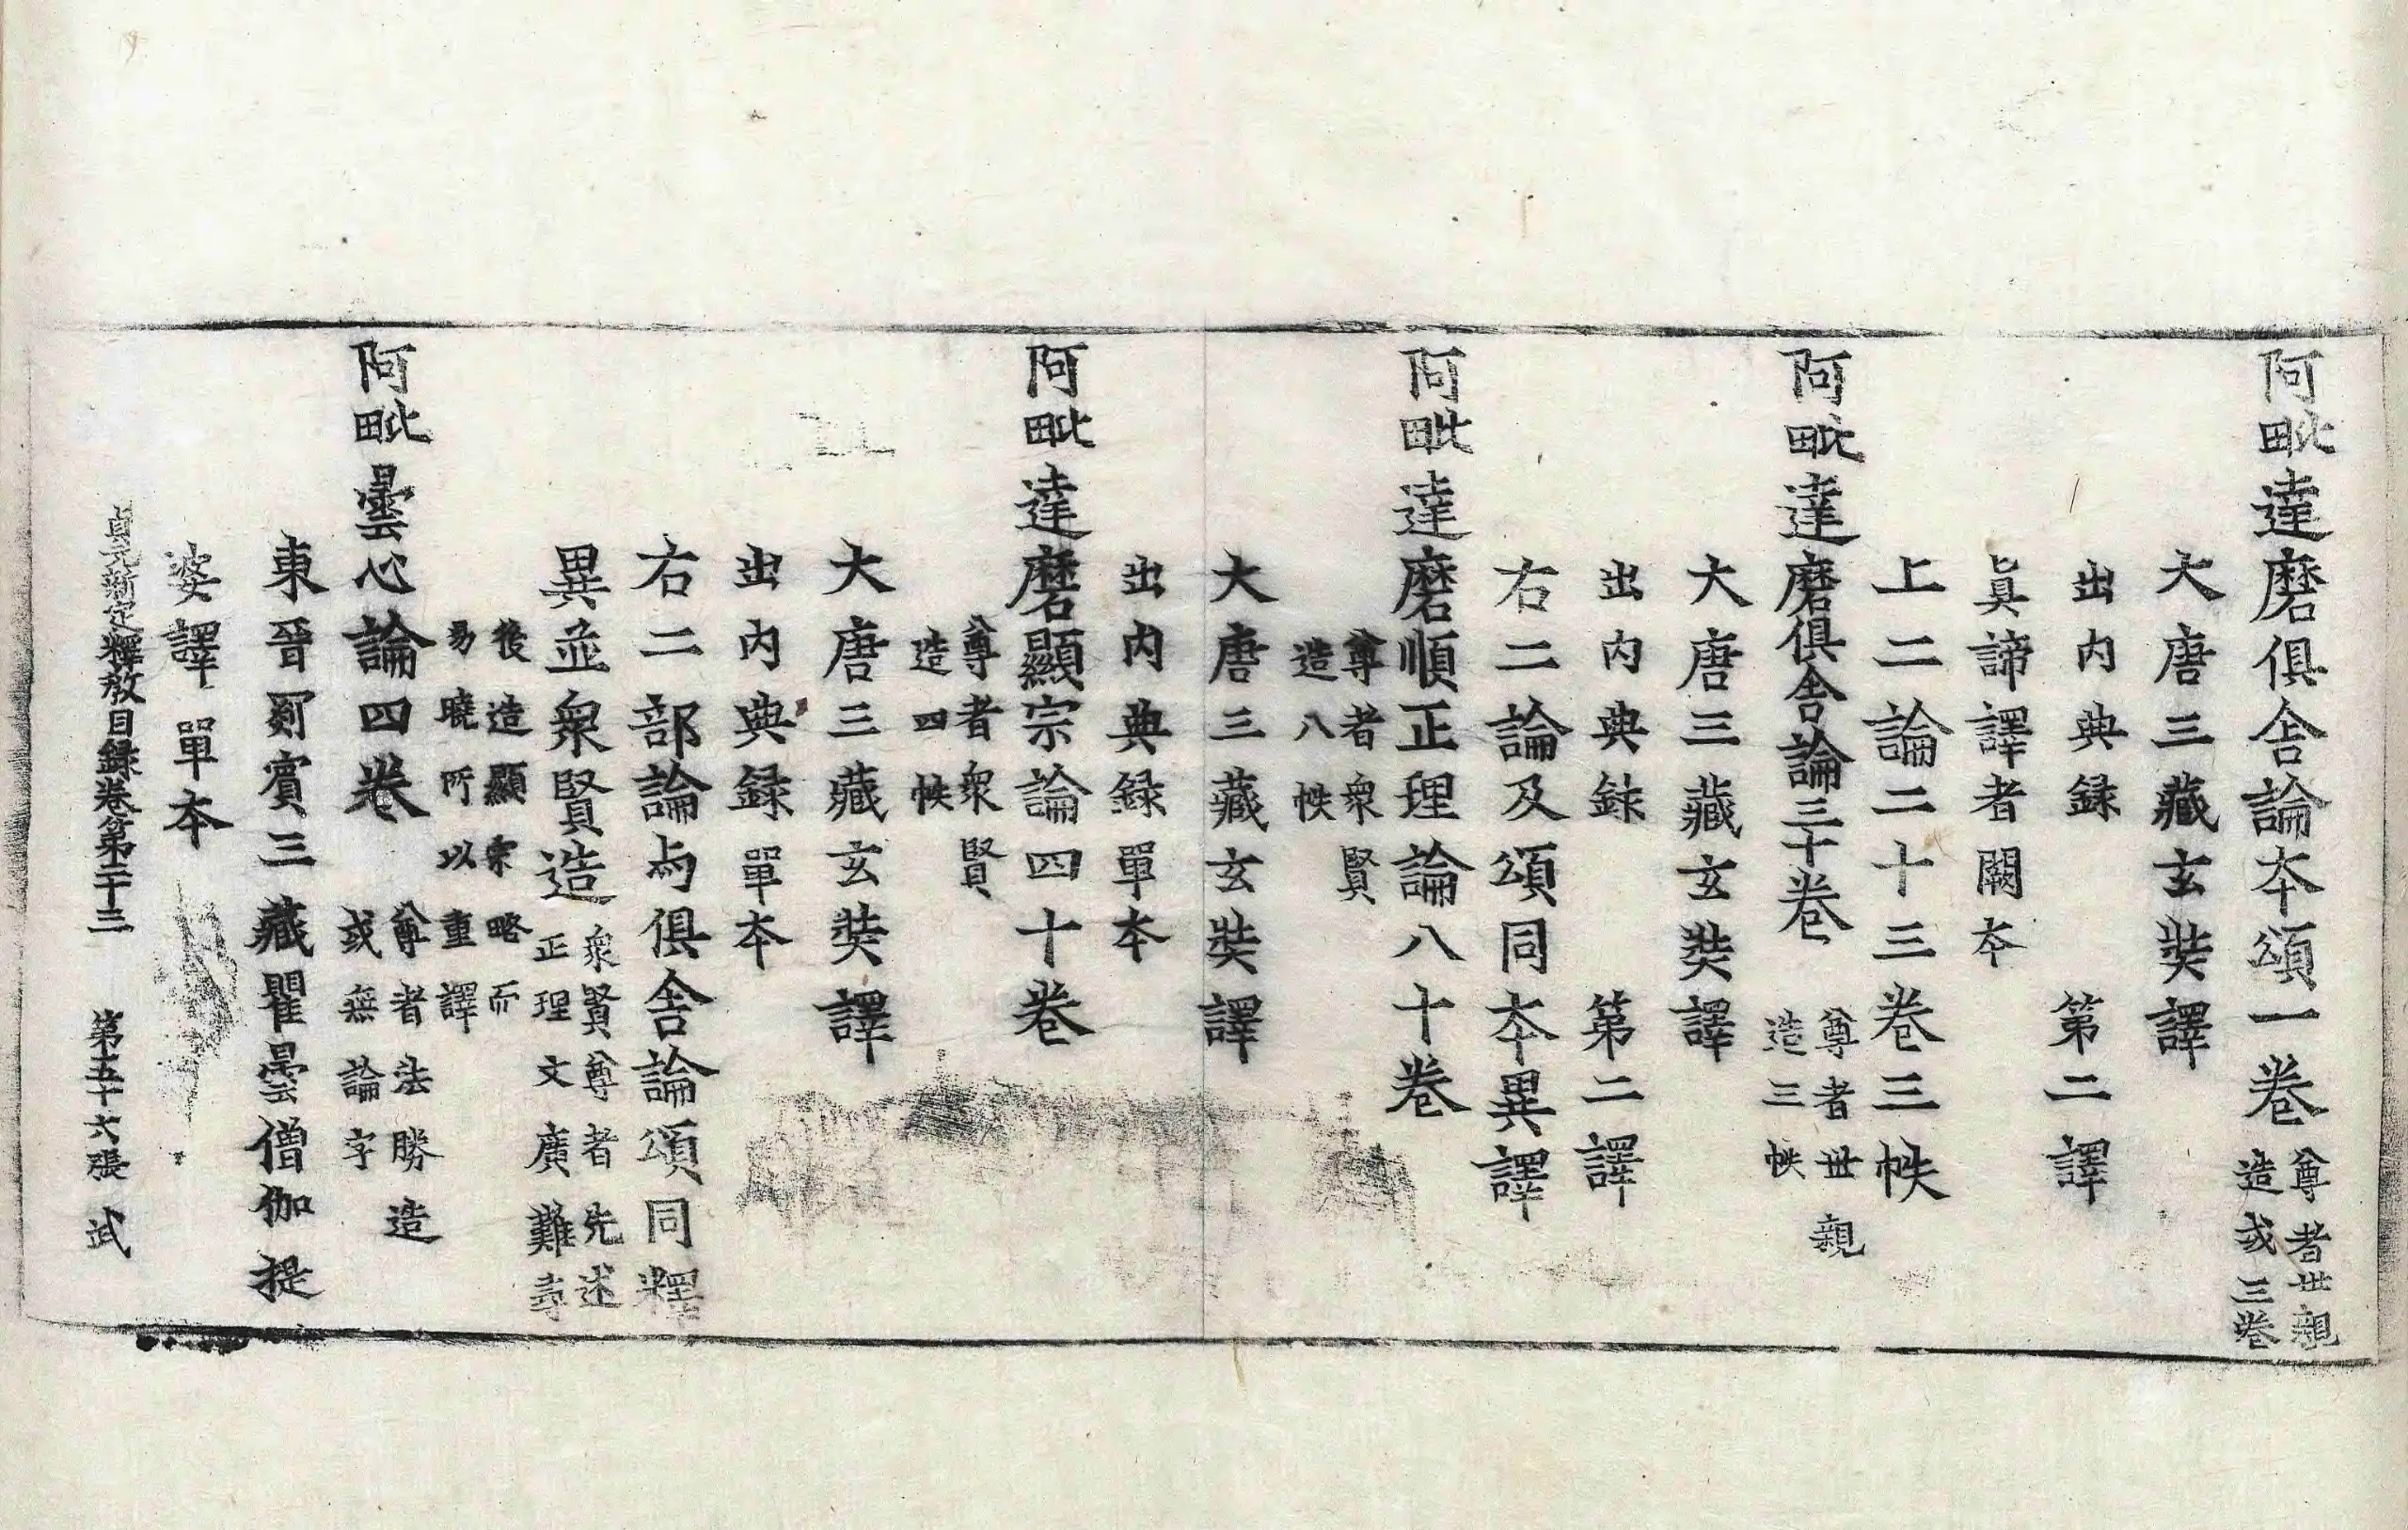 阿毗達磨俱舍論本頌一卷 尊者世親造或三卷
大唐三藏玄奘譯
出内典録 第二譯
真諦譯者闕本
上二論二十三卷三帙
阿毗達磨俱舍論三十卷 尊者世親造三帙
大唐三藏玄奘譯
出内典録 第二譯
右二論及頌同本異譯
阿毗達磨順正理論八十卷
尊者衆賢造八帙
大唐三藏玄奘譯
出内典録單本
阿毗達磨顯宗論四十卷
尊者衆賢造四帙
大唐三藏玄奘譯
出内典録單本
右二部論与俱舍論頌同釋
異並衆賢造 衆賢尊者先述正理文廣難尋
後造顯宗略而易曉所以重譯
阿毗曇心論四卷 尊者法勝造或無論字
東晉罽賓三藏瞿曇僧伽提
婆譯 單本
貞元新定釋教目録卷第二十三 第五十六張 武